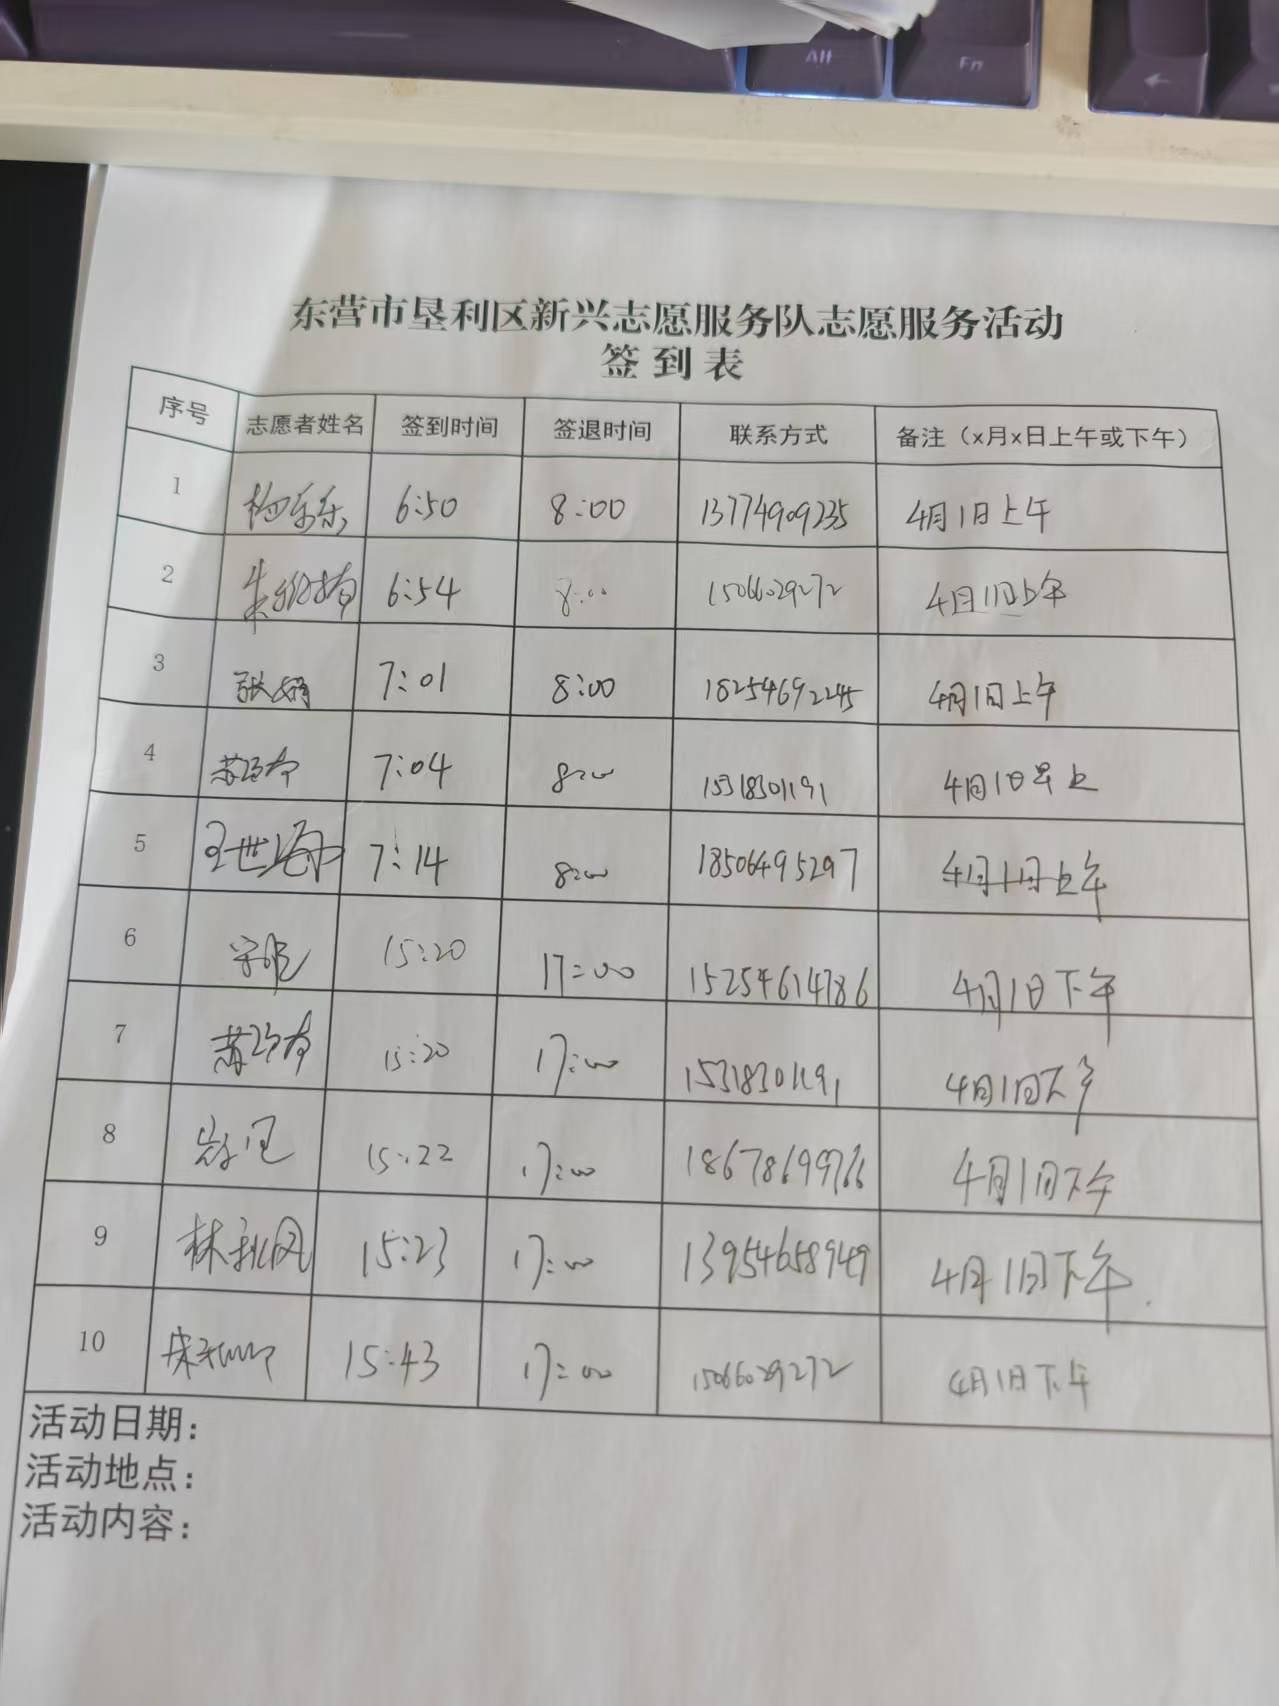 Alt
Fn
←
东营市垦利区新兴志愿服务队志愿服务活动
签到表
序号 志愿者姓名 签到时间 签退时间 联系方式 备注（x月x日上午或下午）
1 6:50 8:00 13774909235 4月1日上午
2 6:54 8:00 15066029272 4月1日上午
3 张娟 7:01 8:00 18254692245 4月1日上午
4 7:04 8:00 15318301191 4月1日早上
5 王世海 7:14 8:00 18506495297 4月1日上午
6 15:20 17:00 15254614786 4月1日下午
7 15:20 17:00 15318301191 4月1日下午
8 15:22 17:00 18678699766 4月1日下午
9 林秋凤 15:23 17:00 13954658949 4月1日下午
10 15:43 17:00 15066029272 4月1日下午
活动日期：
活动地点：
活动内容：